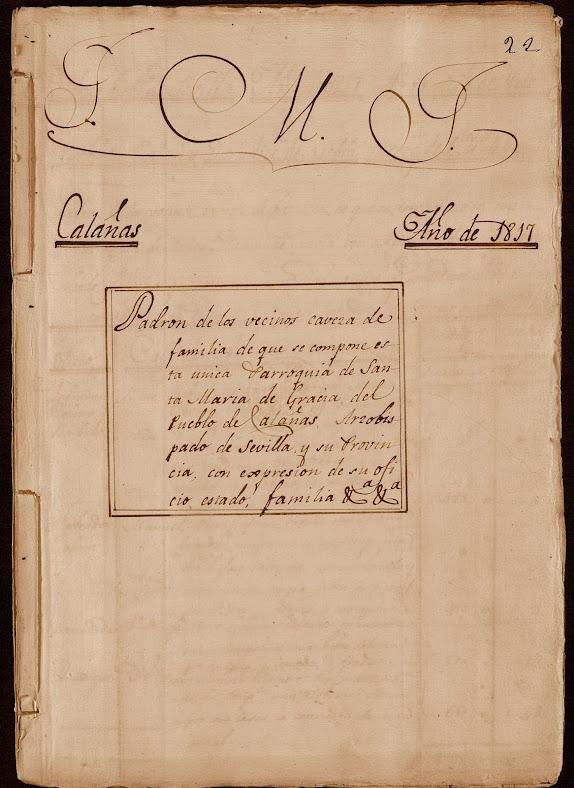 22
J. M. J.
Calañas Año de 1817
Padron de los vecinos caveza de
familia de que se compone es-
ta unica Parroquia de San-
ta Maria de Gracia, del
Pueblo de Calañas, Arzobis
pado de Sevilla, y su Provin-
cia, con expresion de su ofi
cio, estado, familia &a &a